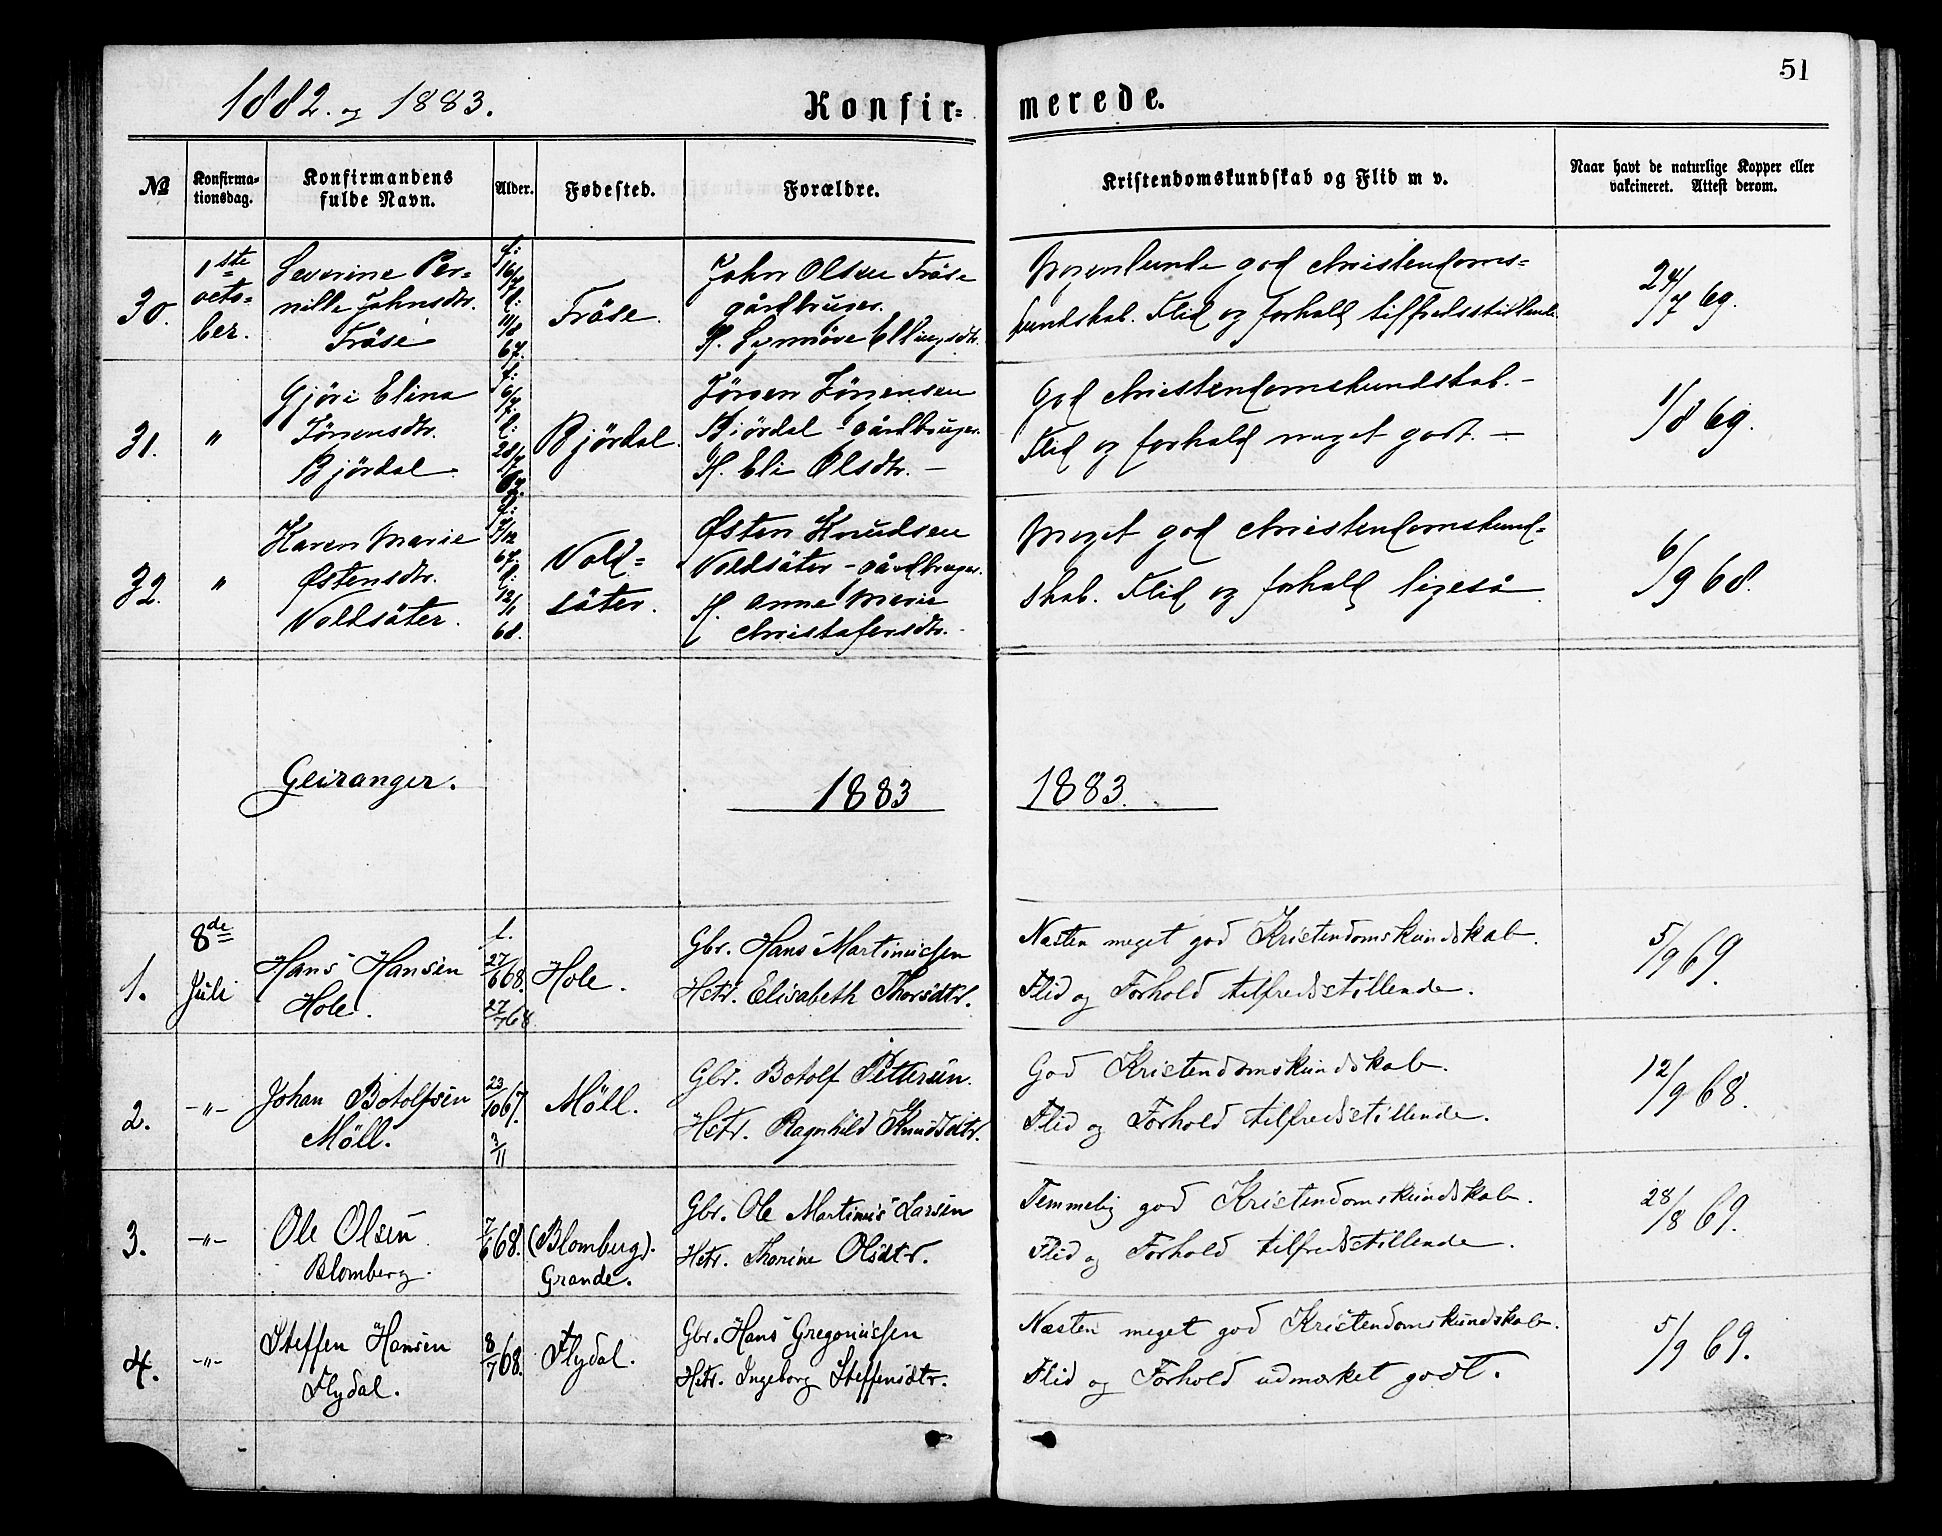 51
1882. og 1883.
Konfir=
merede.
№
Konfirma-
tionsdag.
Konfirmandens
fulde Navn.
Alder.
Fødested.
Forældre.
Kristendomskundskab og Flid m v.
Naar havt de naturlige Kopper eller
vakcineret. Attest derom.
30.
1ste
octo=
ber.
Severine Per=
nille Johnsdtr.
Fröse
f:
16/7
d:
11/8
67.
Fröse.
John Olsen Fröse
gårdbruger.
H. Synnöve Ellingsdtr.
god christendoms=
kundskab. Flid og forhold tilfredsstillende.
24/7 69.
31.
"
Gjöri Elina
Jörgensdtr.
Björdal.
Björdal.
Jörgen Jörgensen
Björdal - gårdbruger.
H. Eli Olsdtr. -
God christendomskundskab. -
Flid og forhold meget godt. -
1/8 69.
32.
"
Karen Marie
Østensdtr.
Voldsäter.
67.
d:
12/1
68.
Vold=
säter.
Østen Knudsen
Voldsäter - gårdbruger.
H. Anne Marie
Christofersdtr. -
Meget god christendomskund=
skab. Flid og forhold ligeså
6/9 68.
Geiranger.
1883
1883.
1.
8de
Juli
Hans Hansen
Hole.
f.
27/6 68.
27/7 68
Hole.
Gbr. Hans Martinussen
Hstr. Elisabeth Thorsdtr.
Næsten meget god Kristendomskundskab.
Flid og Forhold tilfredsstillende.
5/9 69.
2.
-"-
Johan Botolfsen
Möll.
23/10 67.
3/11
Möll.
Gbr. Botolf Pettersen.
Hstr. Ragnhild Knudsdtr.
God Kristendomskundskab.
Flid og Forhold tilfredsstillende.
12/9 68.
3.
-"-
Ole Olsen
Blomberg.
7/6 68.
(Blomberg).
Grande.
Gbr. Ole Martinus Larsen
Hstr. Thorine Olsdtr.
Temmelig god Kristendomskundskab.
Flid og Forhold tilfredsstillende.
28/8 69.
4.
-"-
Steffen Hansen
Flydal.
8/7 68.
Flydal.
Gbr. Hans Gregoriussen
Hstr. Ingeborg Steffensdtr.
Næsten meget god Kristendomskundskab.
Flid og Forhold udmærket godt.
5/9 69.